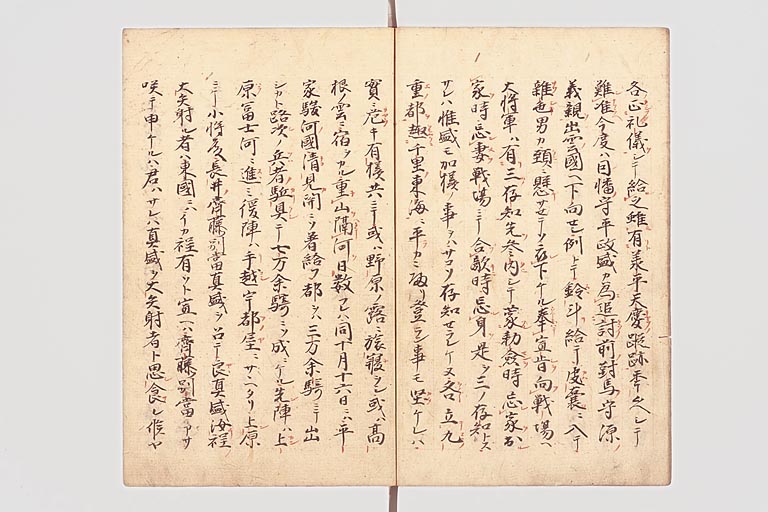 各正礼儀シテ給之雖有義平天慶蹤跡年久シテ
難准今度ハ因幡守平政盛カ為追討前對馬守源
義親出雲國ヘ下向セシ例トテ鈴斗給テ皮囊ニ入テ
雜色男カ頸ニ懸サセテソ被下ケル奉宣旨向戰場ハ
大将軍ハ有三存知先参内シテ蒙勅命時忘家出
家時忘妻戰場ニシテ合敵時忘身是ヲ三ノ存知トス
サレハ惟盛モ加樣ノ事ヲハサコソ存知セラレケメ各立九
重都趣千里東海ニ平カニ歸リ登ラン事モ堅ケレハ
實ニ危キ有樣共ニテ或ハ野原ノ露ニ旅寢シ或ハ高
根雲ニ宿ヲカル重山隔河日數フレハ同十月十六日ニハ平
家駿河國清見關ニソ著給フ都ヲハ三万余騎ニテ出
シカト路次ノ兵者駈具シテ七万余騎ニソ成ニケル先陣ハ上
原冨士河ニ進ミ後陣ハ手越宇都屋ニサヽヘタリ上原
ニテ小将長井齊藤別當真盛ヲ召テ良真盛汝程
大矢射ル者ハ東國ニハイカ程有ソト宣ヘハ齊藤別當
咲テ申ケルハ君ハサレハ真盛ヲ大矢射者ト思食レ候ヤ